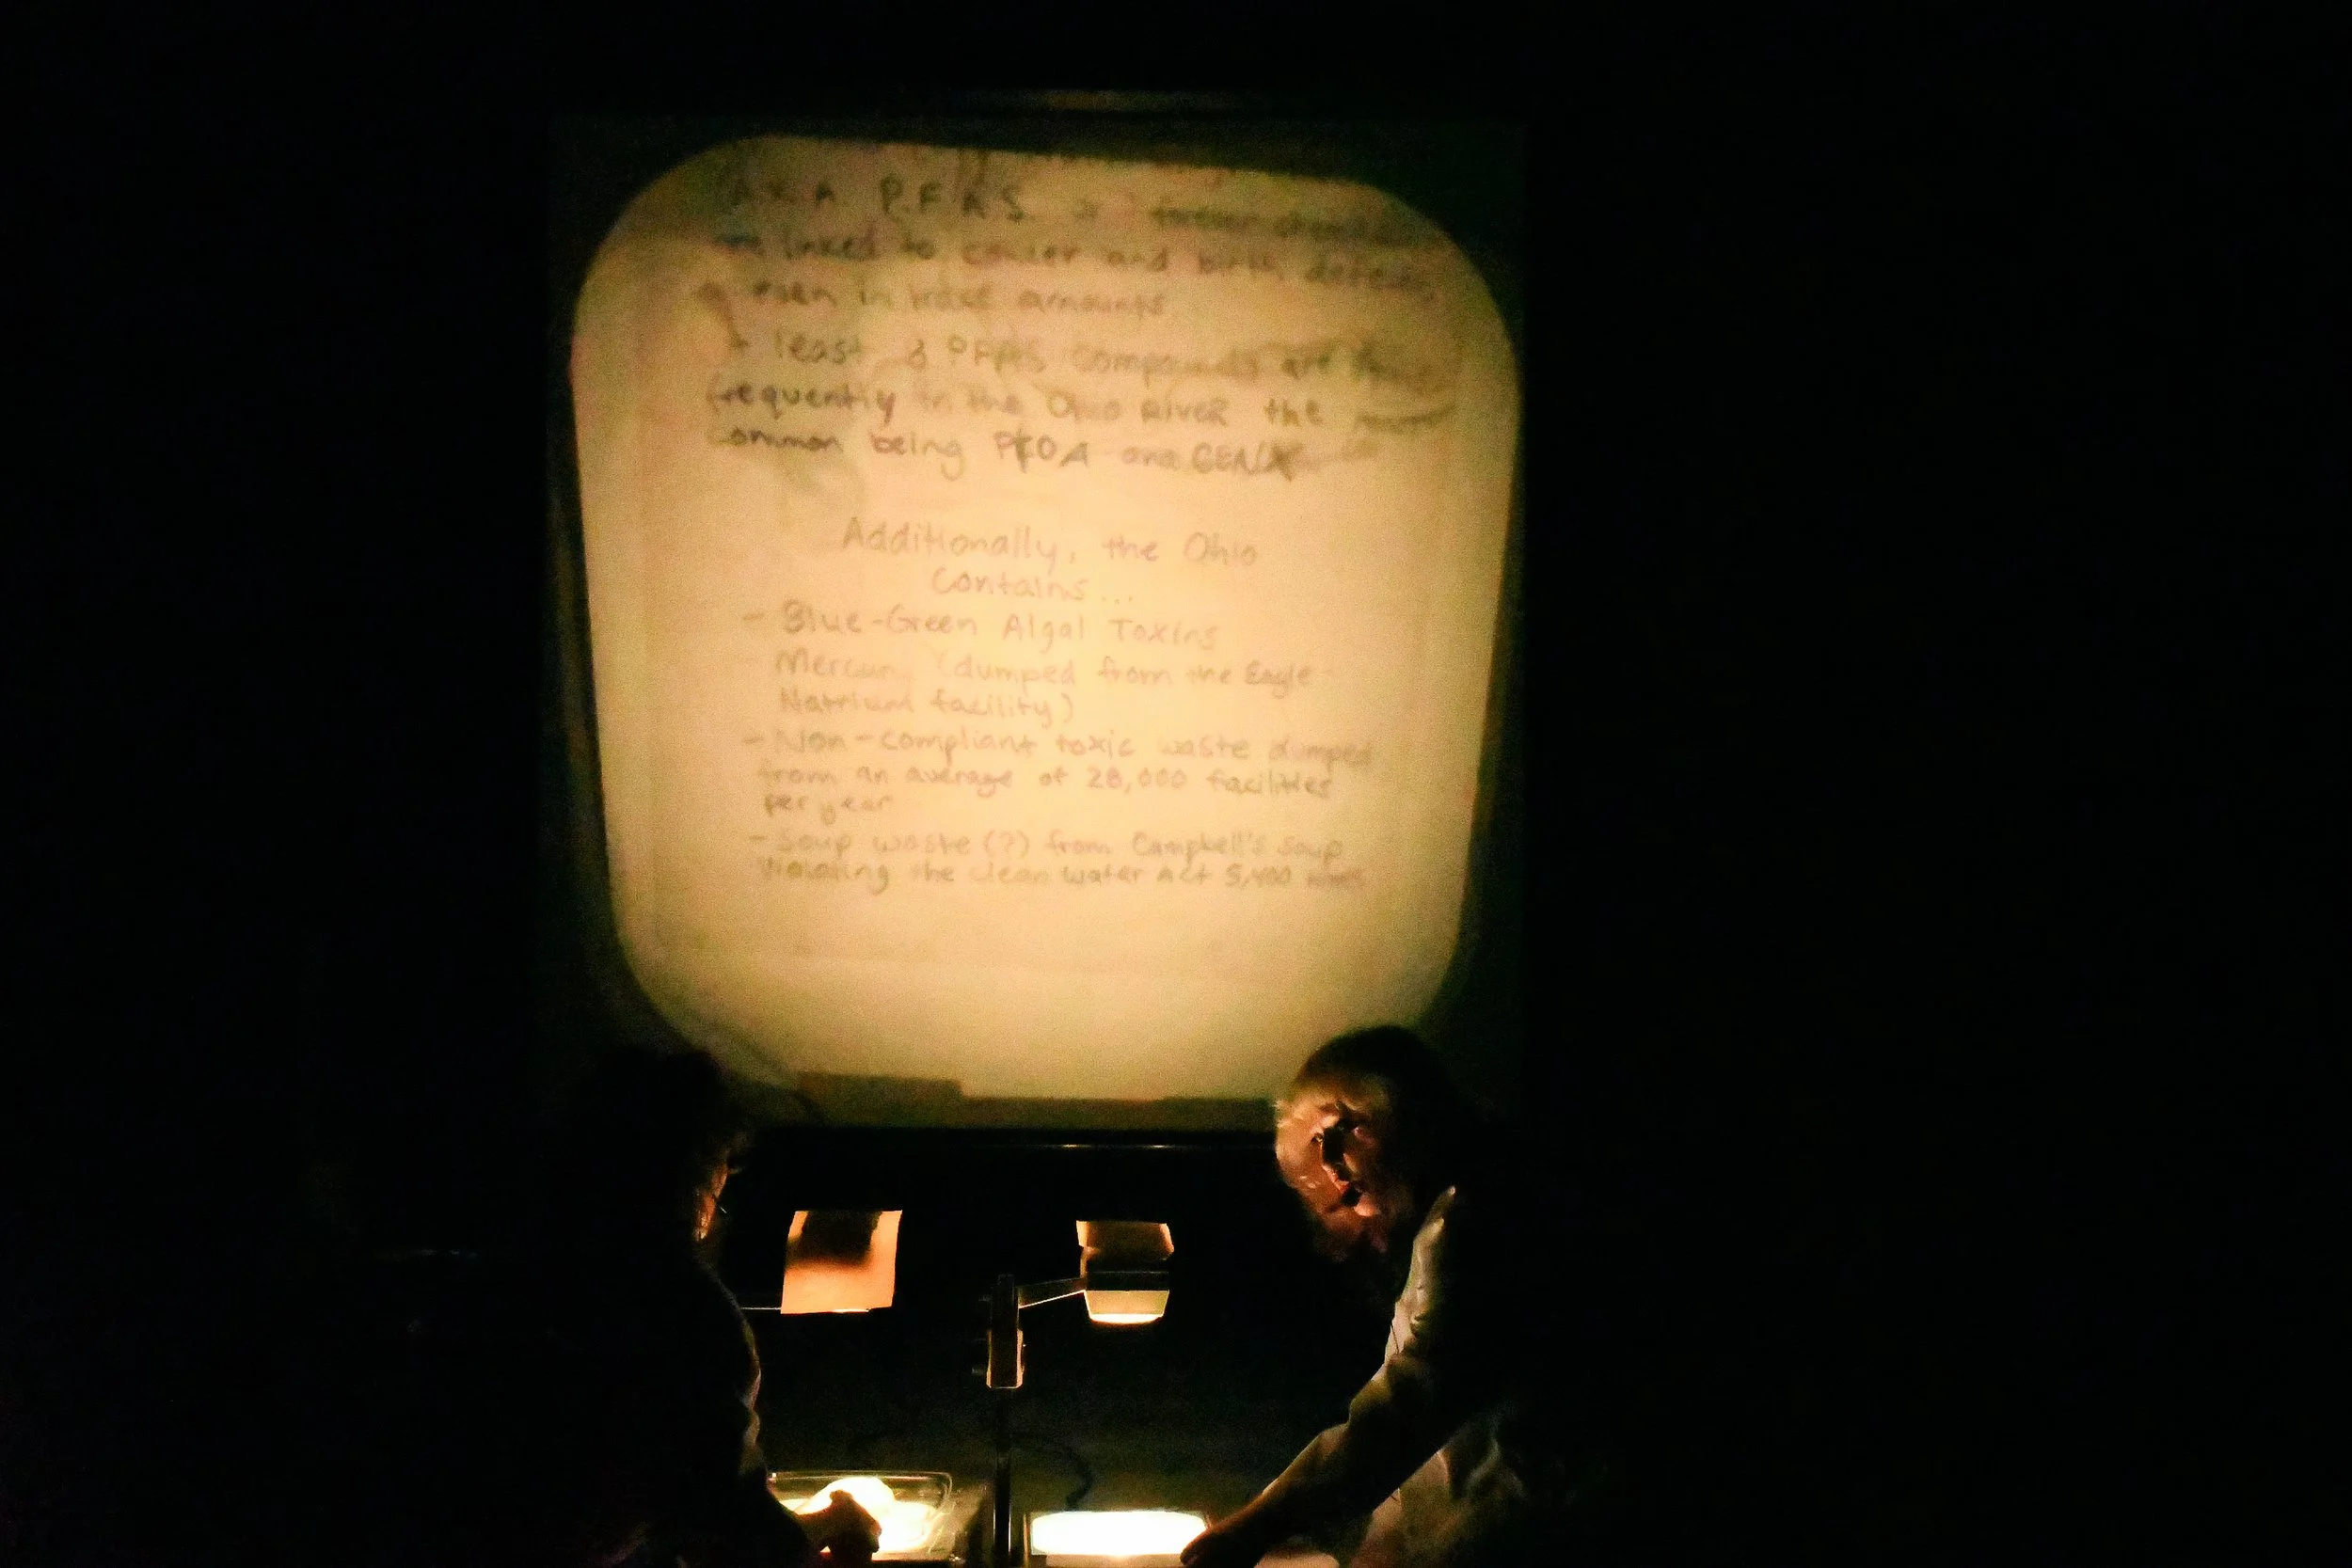 A.K.A P.F.A.S
linked to cancer and birth defects,
even in trace amounts.
least 8 PFAS compounds are
frequently in the Ohio River the most
common being PFOA and GENX
Additionally, the Ohio
Contains...
- Blue-Green Algal Toxins
- Mercury (dumped from the Eagle-
Natrium facility)
- Non-compliant toxic waste dumped
from an average of 28,000 facilities
per year
- Soup waste (?) from Campbell's Soup
Violating the clean water Act 5,400 times